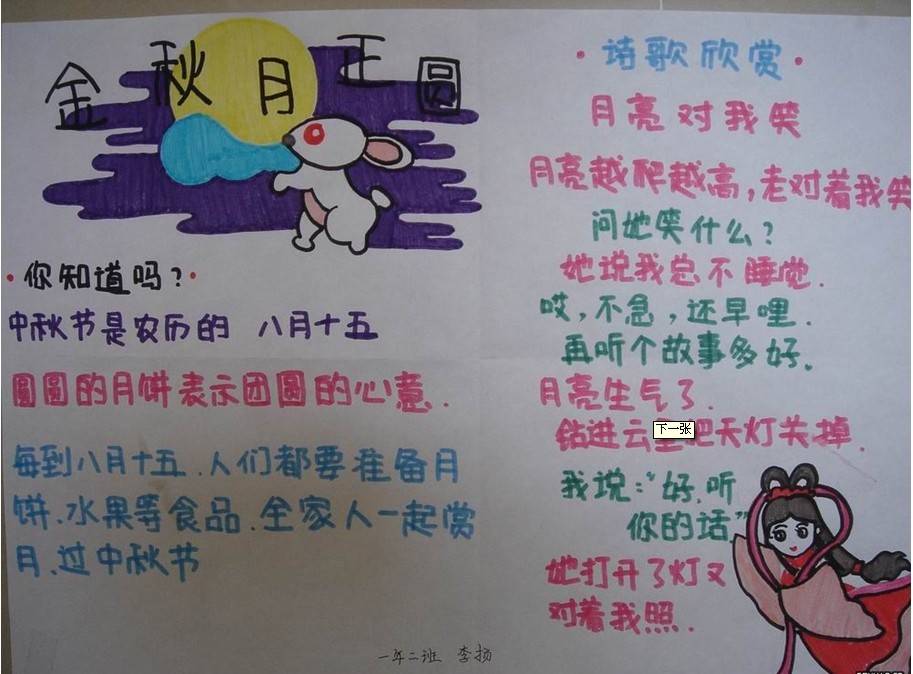 金秋月正圆
·你知道吗？·
中秋节是农历的 八月十五
圆圆的月饼表示团圆的心意.
每到八月十五.人们都要准备月
饼.水果等食品.全家人一起赏
月.过中秋节
·诗歌欣赏·
月亮对我笑
月亮越爬越高,老对着我笑
问她笑什么？
她说我总不睡觉.
哎,不急,还早哩.
再听个故事多好.
月亮生气了.
钻进云 把天灯关掉.
下一张
我说:“好.听
你的话.”
她打开了灯又
对着我照.
一年二班 李扬